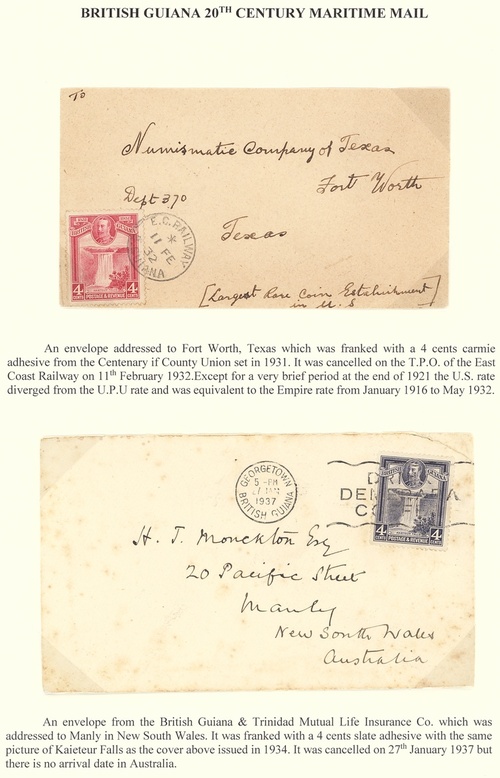 BRITISH GUIANA 20TH CENTURY MARITIME MAIL
To
Numismatic Company of Texas
Fort Worth
Dept 370
Texas
[Largest Rare Coin Establishment]
in U.S
E.C. RAILWAY
*
11 FE
32
BRITISH GUIANA
4 CENTS
POSTAGE & REVENUE
4 CENTS
An envelope addressed to Fort Worth, Texas which was franked with a 4 cents carmie
adhesive from the Centenary if County Union set in 1931. It was cancelled on the T.P.O. of the East
Coast Railway on 11th February 1932.Except for a very brief period at the end of 1921 the U.S. rate
diverged from the U.P.U rate and was equivalent to the Empire rate from January 1916 to May 1932.
GEORGETOWN
5 - PM
27 JAN
1937
BRITISH GUIANA
DRINK
DEMERARA
BRITISH GUIANA
4 CENTS
POSTAGE & REVENUE
4 CENTS
H. T. Monckton Esq
20 Pacific Street
Manly
New South Wales
Australia
An envelope from the British Guiana & Trinidad Mutual Life Insurance Co. which was
addressed to Manly in New South Wales. It was franked with a 4 cents slate adhesive with the same
picture of Kaieteur Falls as the cover above issued in 1934. It was cancelled on 27th January 1937 but
there is no arrival date in Australia.